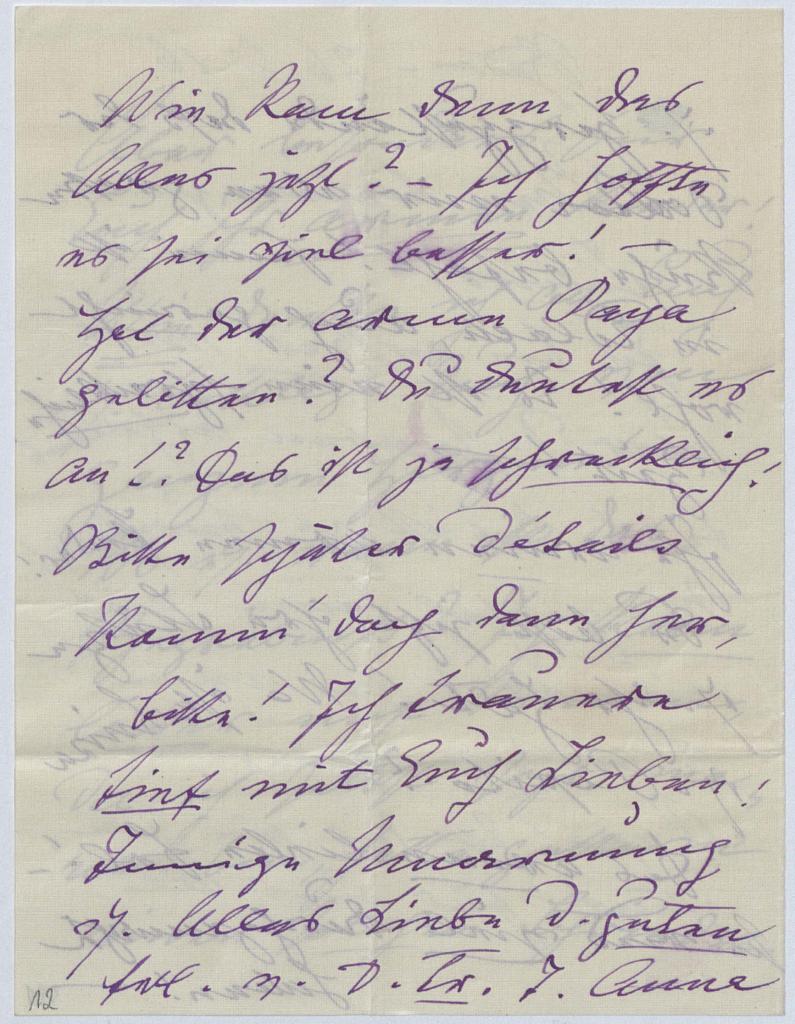 Wie kam denn das
Alles jetzt? – Ich hoffte
es sei viel besser! –
Hat der arme Papa
gelitten? Du deutest es
an!? Das ist ja schrecklich!
Bitte später Détails
Komm' doch dann her,
bitte! Ich trauere
tief mit Euch Lieben!
Innige Umarmung
u. Alles Liebe d. guten
v. D. Tr. T. Anna
12